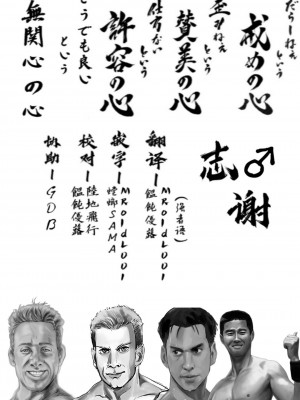 だらしねえ
という
戒めの心
歪みねえ
という
賛美の心
仕方ない
という
許容の心
どうでも良い
という
無関心の心
志♂谢
翻译—MROldLOOI
(海者语)
饂飩侵露
嵌字—MROldLOOI
螳螂SAMA
校对—陸地飛行
饂飩侵露
协助—GDB